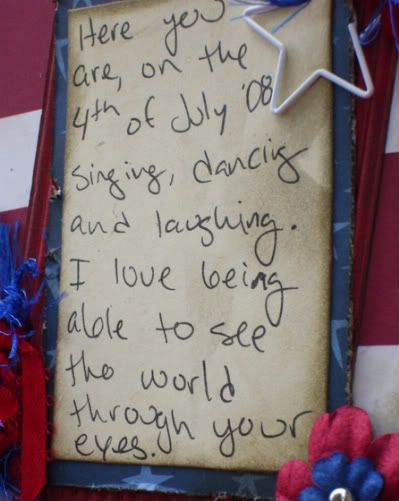 Here you
are, on the
4th of July '08
singing, dancing
and laughing.
I love being
able to see
the world
through your
eyes.